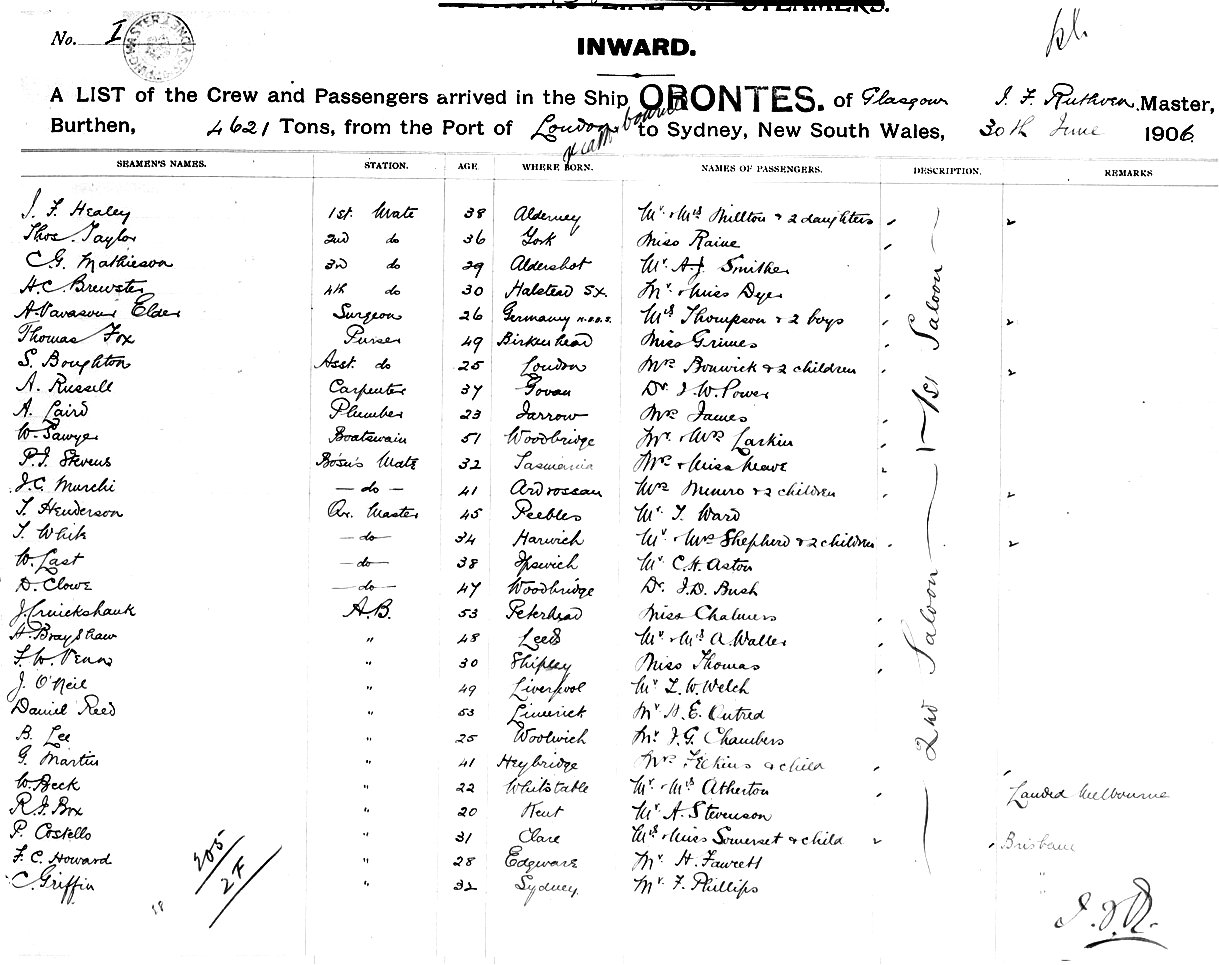 LINE OF STEAMERS.
No. I
INWARD.
A LIST of the Crew and Passengers arrived in the Ship ORONTES. of Glasgow J. F. Ruthven Master,
Burthen, 4621 Tons, from the Port of London to Sydney, New South Wales, 30th June 1906
SEAMEN'S NAMES. STATION. AGE WHERE BORN. NAMES OF PASSENGERS. DESCRIPTION. REMARKS
J. F. Healey 1st. Mate 38 Alderney Mr. & Mrs Millton & 2 daughters
Thos. Taylor 2nd do 36 York Miss Raine
C. G. Mathieson 3rd do 29 Aldershot Mr. A. J. Smither
H. C. Brewster 4th do 30 Halstead Sx. Mr. & Miss Dyer
A. Vavasour Elder Surgeon 26 Germany N.B.B.S. Mrs Thompson & 2 boys
Thomas Fox Purser 49 Birkenhead Miss Grimes
S. Boughton Asst. do 25 London Mrs Bonwick & 2 children
A. Russell Carpenter 37 Govan Dr. J. W. Power
A. Laird Plumber 23 Jarrow Mrs James
W. Sawyer Boatswain 51 Woodbridge Mr. & Mrs Larkin
P. J. Stevens Bosun's Mate 32 Tasmania Mrs & Miss Meave
J. C. Murchi — do — 41 Ardrossan Mrs Munro & 2 children
T. Henderson Qr. Master 45 Peebles Mr. T. Ward
T. White — do — 34 Harwich Mr. & Mrs Shepherd & 2 children
W. Last — do — 38 Ipswich Mr. C. H. Aston
D. Clowe — do — 47 Woodbridge Dr. J. D. Bush
J. Cruickshank A.B. 53 Peterhead Miss Chalmers
A. Brayshaw " 48 Leeds Mr. & Mrs A. Waller
F. W. Venns " 30 Shipley Miss Thomas
J. O'Neil " 49 Liverpool Mr L. W. Welch
Daniel Reed " 53 Limerick Mr. H. E. Outred
B. Lee " 25 Woolwich Mr. J. G. Chambers
G. Martin " 41 Heybridge Mrs Filkins & child
W. Beck " 22 Whitstable Mr. & Mrs Atherton Landed Melbourne
R. J. Box " 20 Kent Mr. A. Stevenson
P. Costello " 31 Clare Mrs & Miss Somerset & child Brisbane
F. C. Howard " 28 Edgware Mr. H. Fawcett
C. Griffin " 32 Sydney. Mr. F. Phillips
1st Saloon
2nd Saloon
205
2F
18
J. F. R.